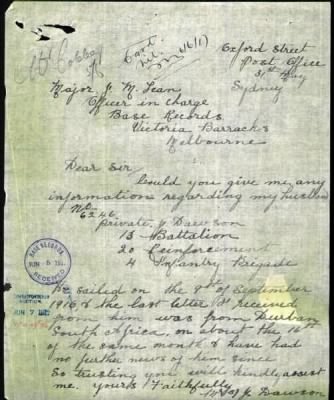 Oxford Street
Post Office
31st May
Sydney
6/6/17
Major J. M. Lean
Officer in charge
Base Records
Victoria Barracks
Melbourne
Dear Sir
Could you give me any
information regarding my husband
No 6246
Private J Dawson
15 Battalion
20 Reinforcement
4 Infantry Brigade
He sailed on the of September
1916 & the last letter I received
from him was from Durban
South Africa, on about the 16th
of the same month & have had
no further news of him since
So trusting you will kindly assist
me. yours Faithfully
J. Dawson
BASE RECORDS
JUN 5 191
RECEIVED
JUN 7